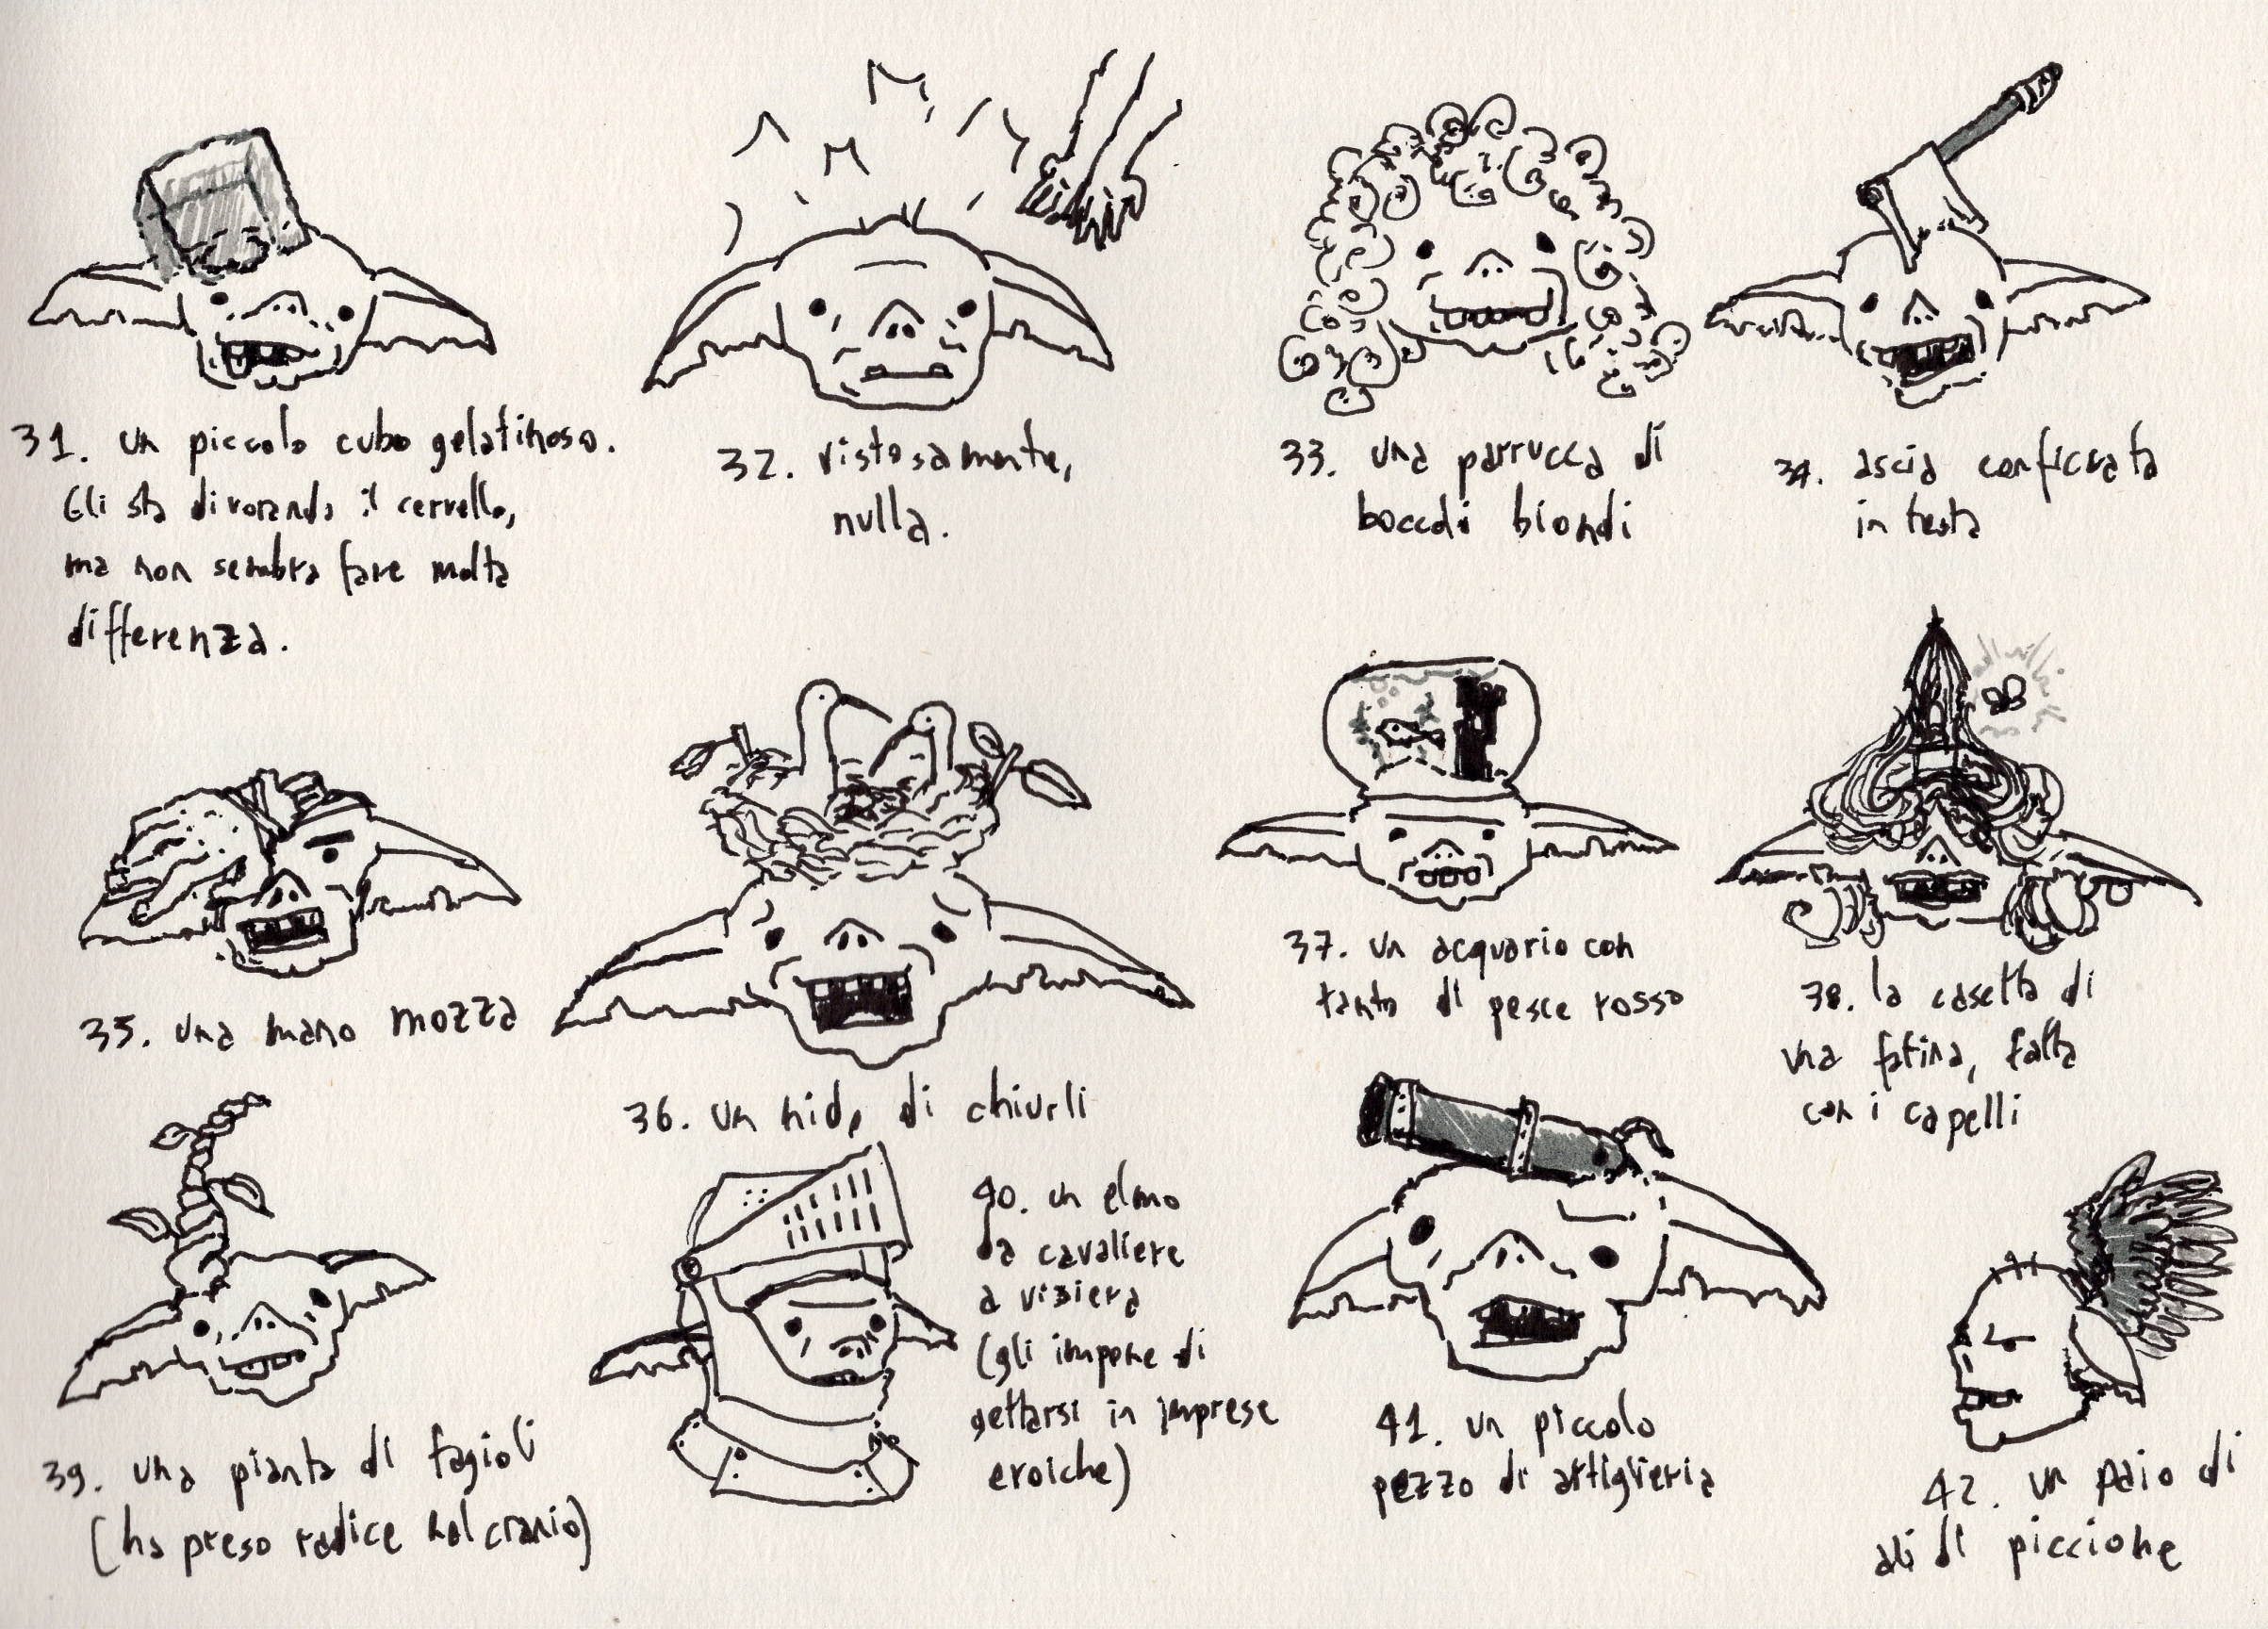 31. un piccolo cubo gelatinoso.
Gli sta divorando il cervello,
ma non sembra fare molta
differenza.
32. vistosamente,
nulla.
33. una parrucca di
boccoli biondi
34. ascia conficcata
in testa
35. una mano mozza
36. un nido di chiurli
37. un acquario con
tanto di pesce rosso
38. la casetta di
una fatina, fatta
con i capelli
39. una pianta di fagioli
(ha preso radice nel cranio)
40. un elmo
da cavaliere
a visiera
(gli impone di
gettarsi in imprese
eroiche)
41. un piccolo
pezzo di artiglieria
42. un paio di
ali di piccione